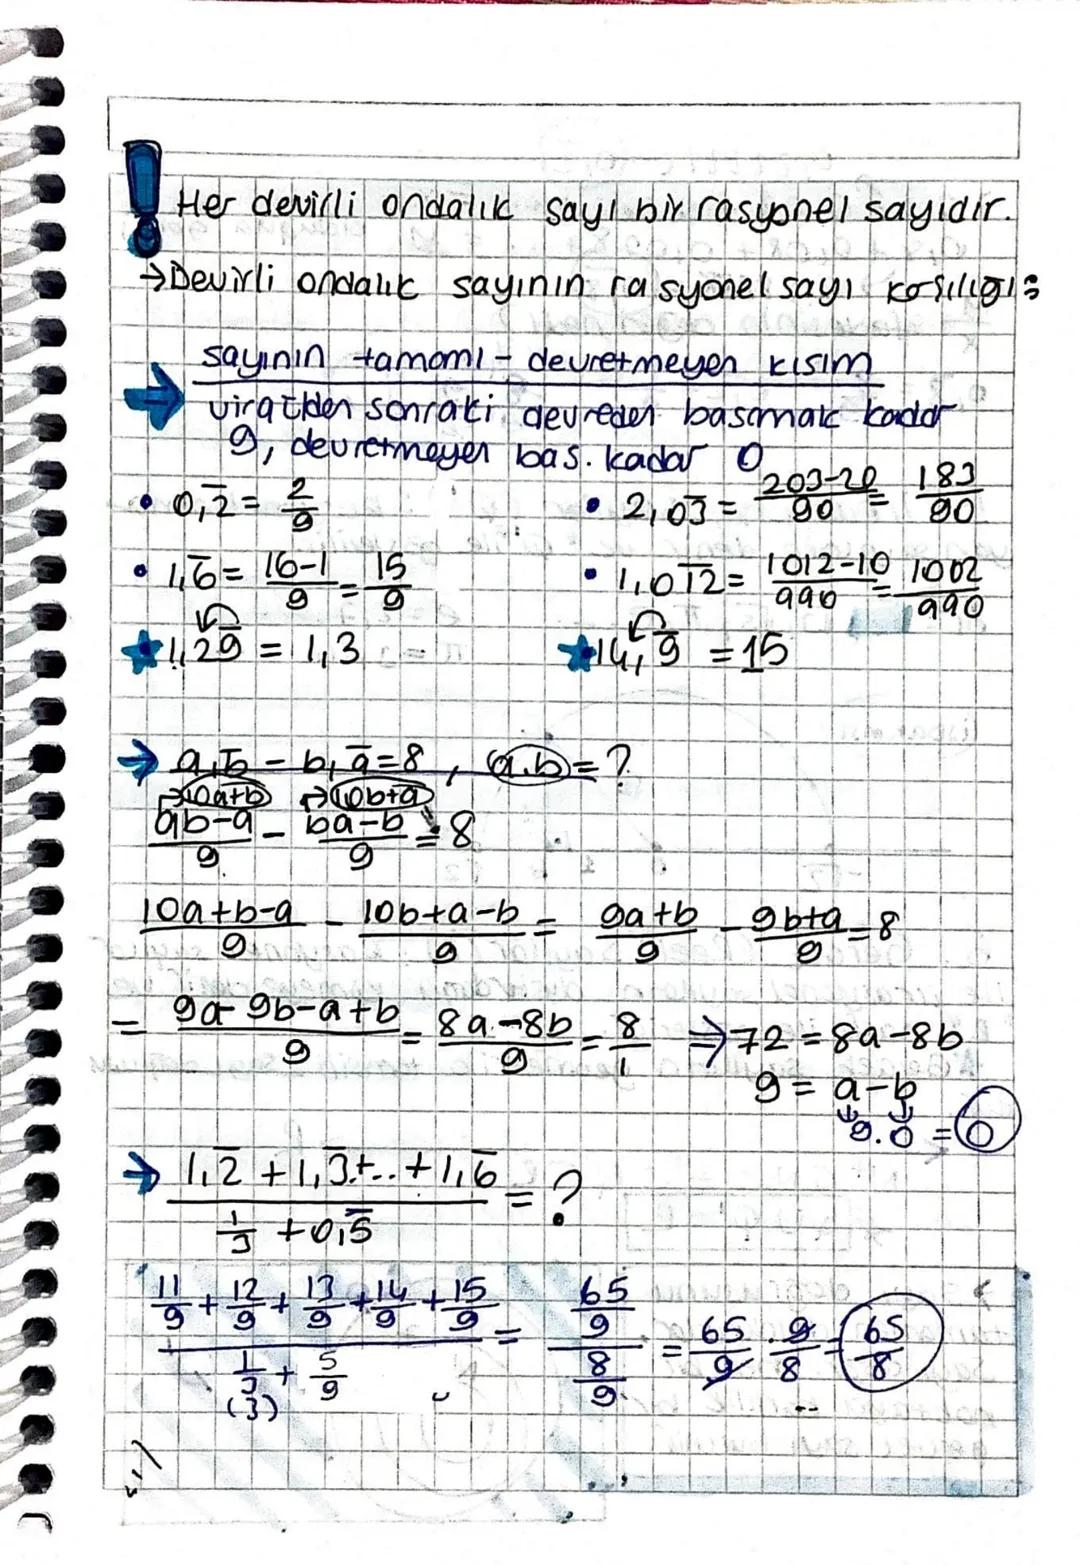 Her devirli ondalık sayı bir rasyonel sayıdır.
→Devirli ondalık sayının rasyonel sayı koşılığı:
→ sayının tamamı - devretmeyen kısım
virgülden sonraki devreden basamak kadar
9, devretmeyen bas. kadar 0
• 0,2̅ = 2/9
• 2,03̅ = 203-20/90 = 183/90
• 1,6̅ = 16-1/9 = 15/9
• 1,01̅2̅ = 1012-10/990 = 1002/990
★ 1,29̅ = 1,3
★ 14,9̅ = 15
→ a,b̅ - b,a̅ = 8 , a.b = ?
→10a+b →10b+a
ab-a/9 - ba-b/9 = 8
10a+b-a/9 - 10b+a-b/9 = 9a+b/9 - 9b+a/9 = 8
= 9a-9b-a+b/9 = 8a-8b/9 = 8/1 ⇒ 72 = 8a-8b
9 = a-b
9.0 = 0
→ 1,2̅ + 1,3̅+..+1,6̅ / 1/3 + 0,5̅ = ?
11/9 + 12/9 + 13/9 + 14/9 + 15/9 / 1/3 + 5/9 = 65/9 / 8/9 = 65/9 . 9/8 = 65/8
(3)